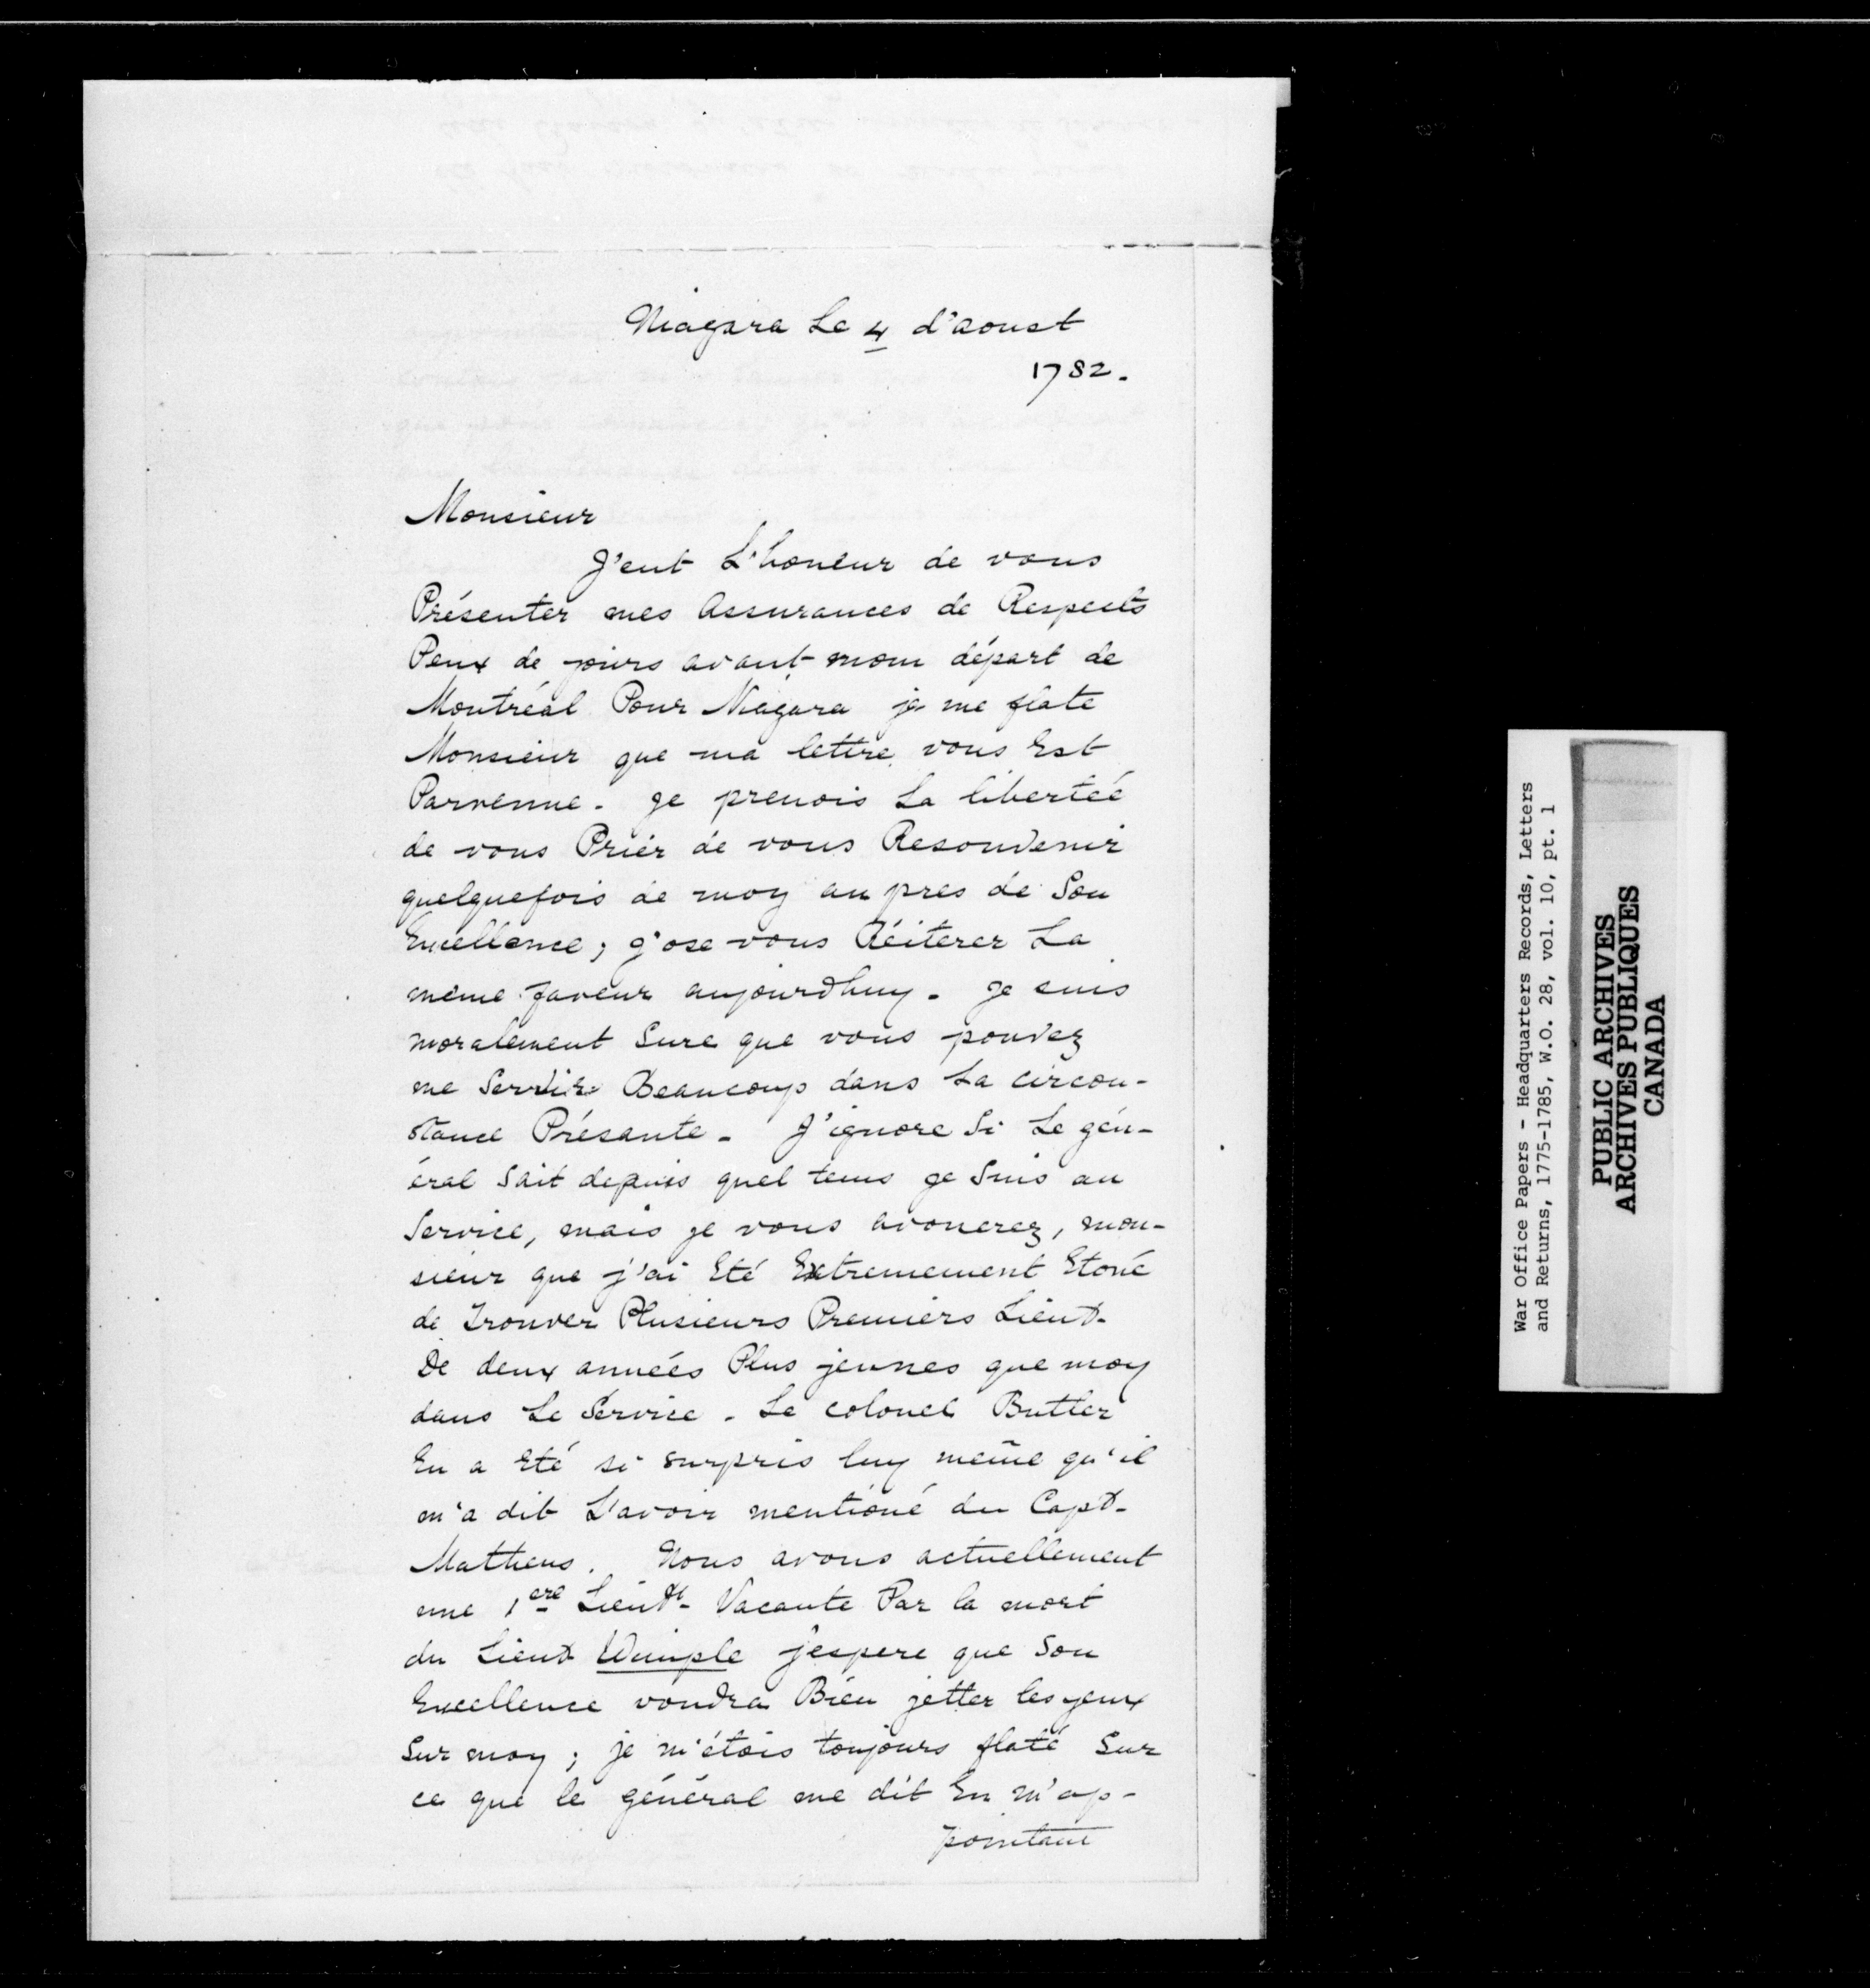 Niagara Le 4 d'aoust
1782.
Monsieur
J'eut L'honeur de vous
Présenter mes Assurances de Respects
Peux de jours avant mom départ de
Montréal Pour Niagara je me flate
Monsieur que ma lettre vous Est
Parvenue. je prenois La libertéé
de vous Prier de vous Resouvenir
quelquefois de moy au pres de Son
Excellence; j'ose vous Réiterer La
même faveur aujourdhuy. je suis
moralement Sure que vous pouvez
me Servir Beaucoup dans La circon-
stance Présante. J'ignore Si Le gén-
éral Sait depuis quel tems je Suis au
Service, mais je vous avouerez, mon-
sieur que j'ai Eté Extremement Etoné
de Trouver Plusieurs Premiers Lieut.
De deux années Plus jeunes que moy
dans Le Service. Le colonel Butler
En a Eté si surpris luy même qu'il
m'a dit L'avoir mentioné du Capt.
Mathews. Nous avons actuellement
une 1ere Lieut. Vacante Par la mort
du Lieut Wimple j'espere que Son
Excellence voudra Bien jetter les yeux
Sur moy; je m'étois toujours flaté Sur
ce que le général me dit En m'ap-
pointant
War Office Papers - Headquarters Records, Letters
and Returns, 1775-1785, W.O. 28, vol. 10, pt. 1
PUBLIC ARCHIVES
ARCHIVES PUBLIQUES
CANADA